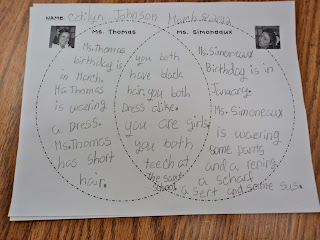 NAME: Edilyn Johnson March 8, 2012
Ms. Thomas
Ms. Thomas
birthday is
in March.
Ms Thomas
is wearing
a Dress.
Ms. Thomas
has short
hair.
you both
have black
hair. you both
Dress alike.
you are girls
you both
teech at
the same
school
Ms. Simoneaux
Ms. Simoneaux
Birthday is in
January.
Ms. Simoneaux
is waering
some pants
and a
a scharf
a sert and some sus.